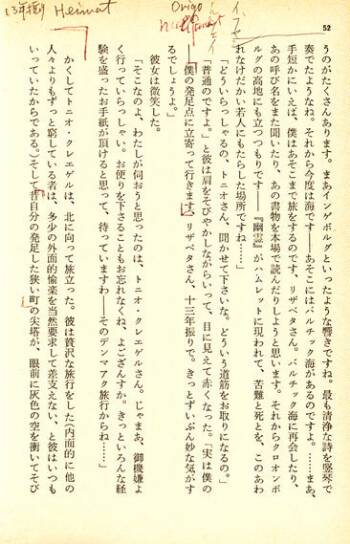 52
13年振り Heimat
Origo
うのがたくさんあります。まあインゲボルグといったような響きですね。最も清浄な詩を竪琴で
奏でたようなね。それから今度は海です――あそこにはバルチック海があるのですよ。……まあ、
手短かにいえば、僕はあそこまで旅をするのです、リザベタさん。バルチック海に再会したり、
あの呼び名をまた聞いたり、あの書物を本場で読んだりしようと思います。それからクロオンボ
ルグの高地にも立つつもりです――『幽霊』がハムレットに現われて、苦難と死とを、このあわ
れなけだかい若人にもたらした場所ですね……」
「どういらっしゃるの、トニオさん、聞かせて下さいな。どういう道筋をお取りになるの。」
「普通のですよ。」と彼は肩をそびやかしながらいって、目に見えて赤くなった。「実は僕の
――僕の発足点に立寄って行きます、リザベタさん、十三年振りで。きっとずいぶん妙な気がす
るでしょうよ。」
彼女は微笑した。
「そこなのよ、わたしが伺おうと思ったのは、トニオ・クレエゲルさん。じゃまあ、御機嫌よ
く行っていらっしゃい。お便りを下さることもお忘れなくね、よござんすか。きっといろんな経
験を盛ったお手紙が頂けると思って、待っていますわ――そのデンマアク旅行からね……」
かくしてトニオ・クレエゲルは、北に向って旅立った。彼は贅沢な旅行をした(内面的に他の
人々よりもずっと窮している者は、多少の外面的愉楽を当然要求して差支えない、と彼はいつも
いっていたからである。)そして昔自分の発足した狭い町の尖塔が、眼前に灰色の空を衝いてそび